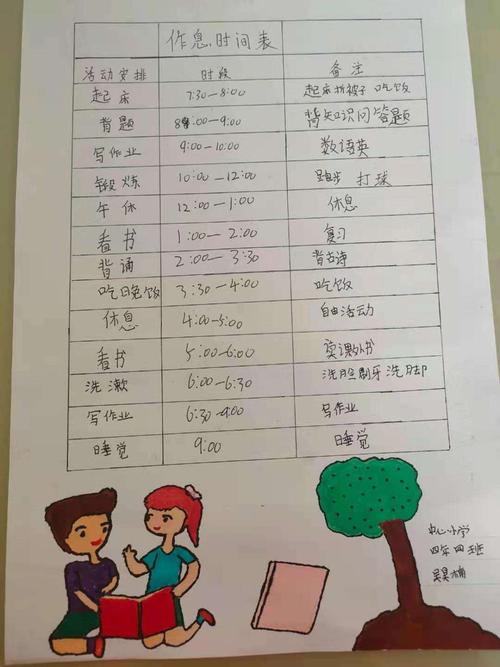 作息时间表
活动安排 时段 备注
起床 7:30—8:00 起床折被子 吃饭
背题 8:00—9:00 背知识问答题
写作业 9:00—10:00 数语英
锻炼 10:00—12:00 跑步 打球
午休 12:00—1:00 休息
看书 1:00—2:00 复习
背诵 2:00—3:30 背古诗
吃晚饭 3:30—4:00 吃饭
休息 4:00—5:00 自由活动
看书 5:00—6:00 读课外书
洗漱 6:00—6:30 洗脸刷牙洗脚
写作业 6:30—9:00 写作业
睡觉 9:00 睡觉
中心小学
四年四班